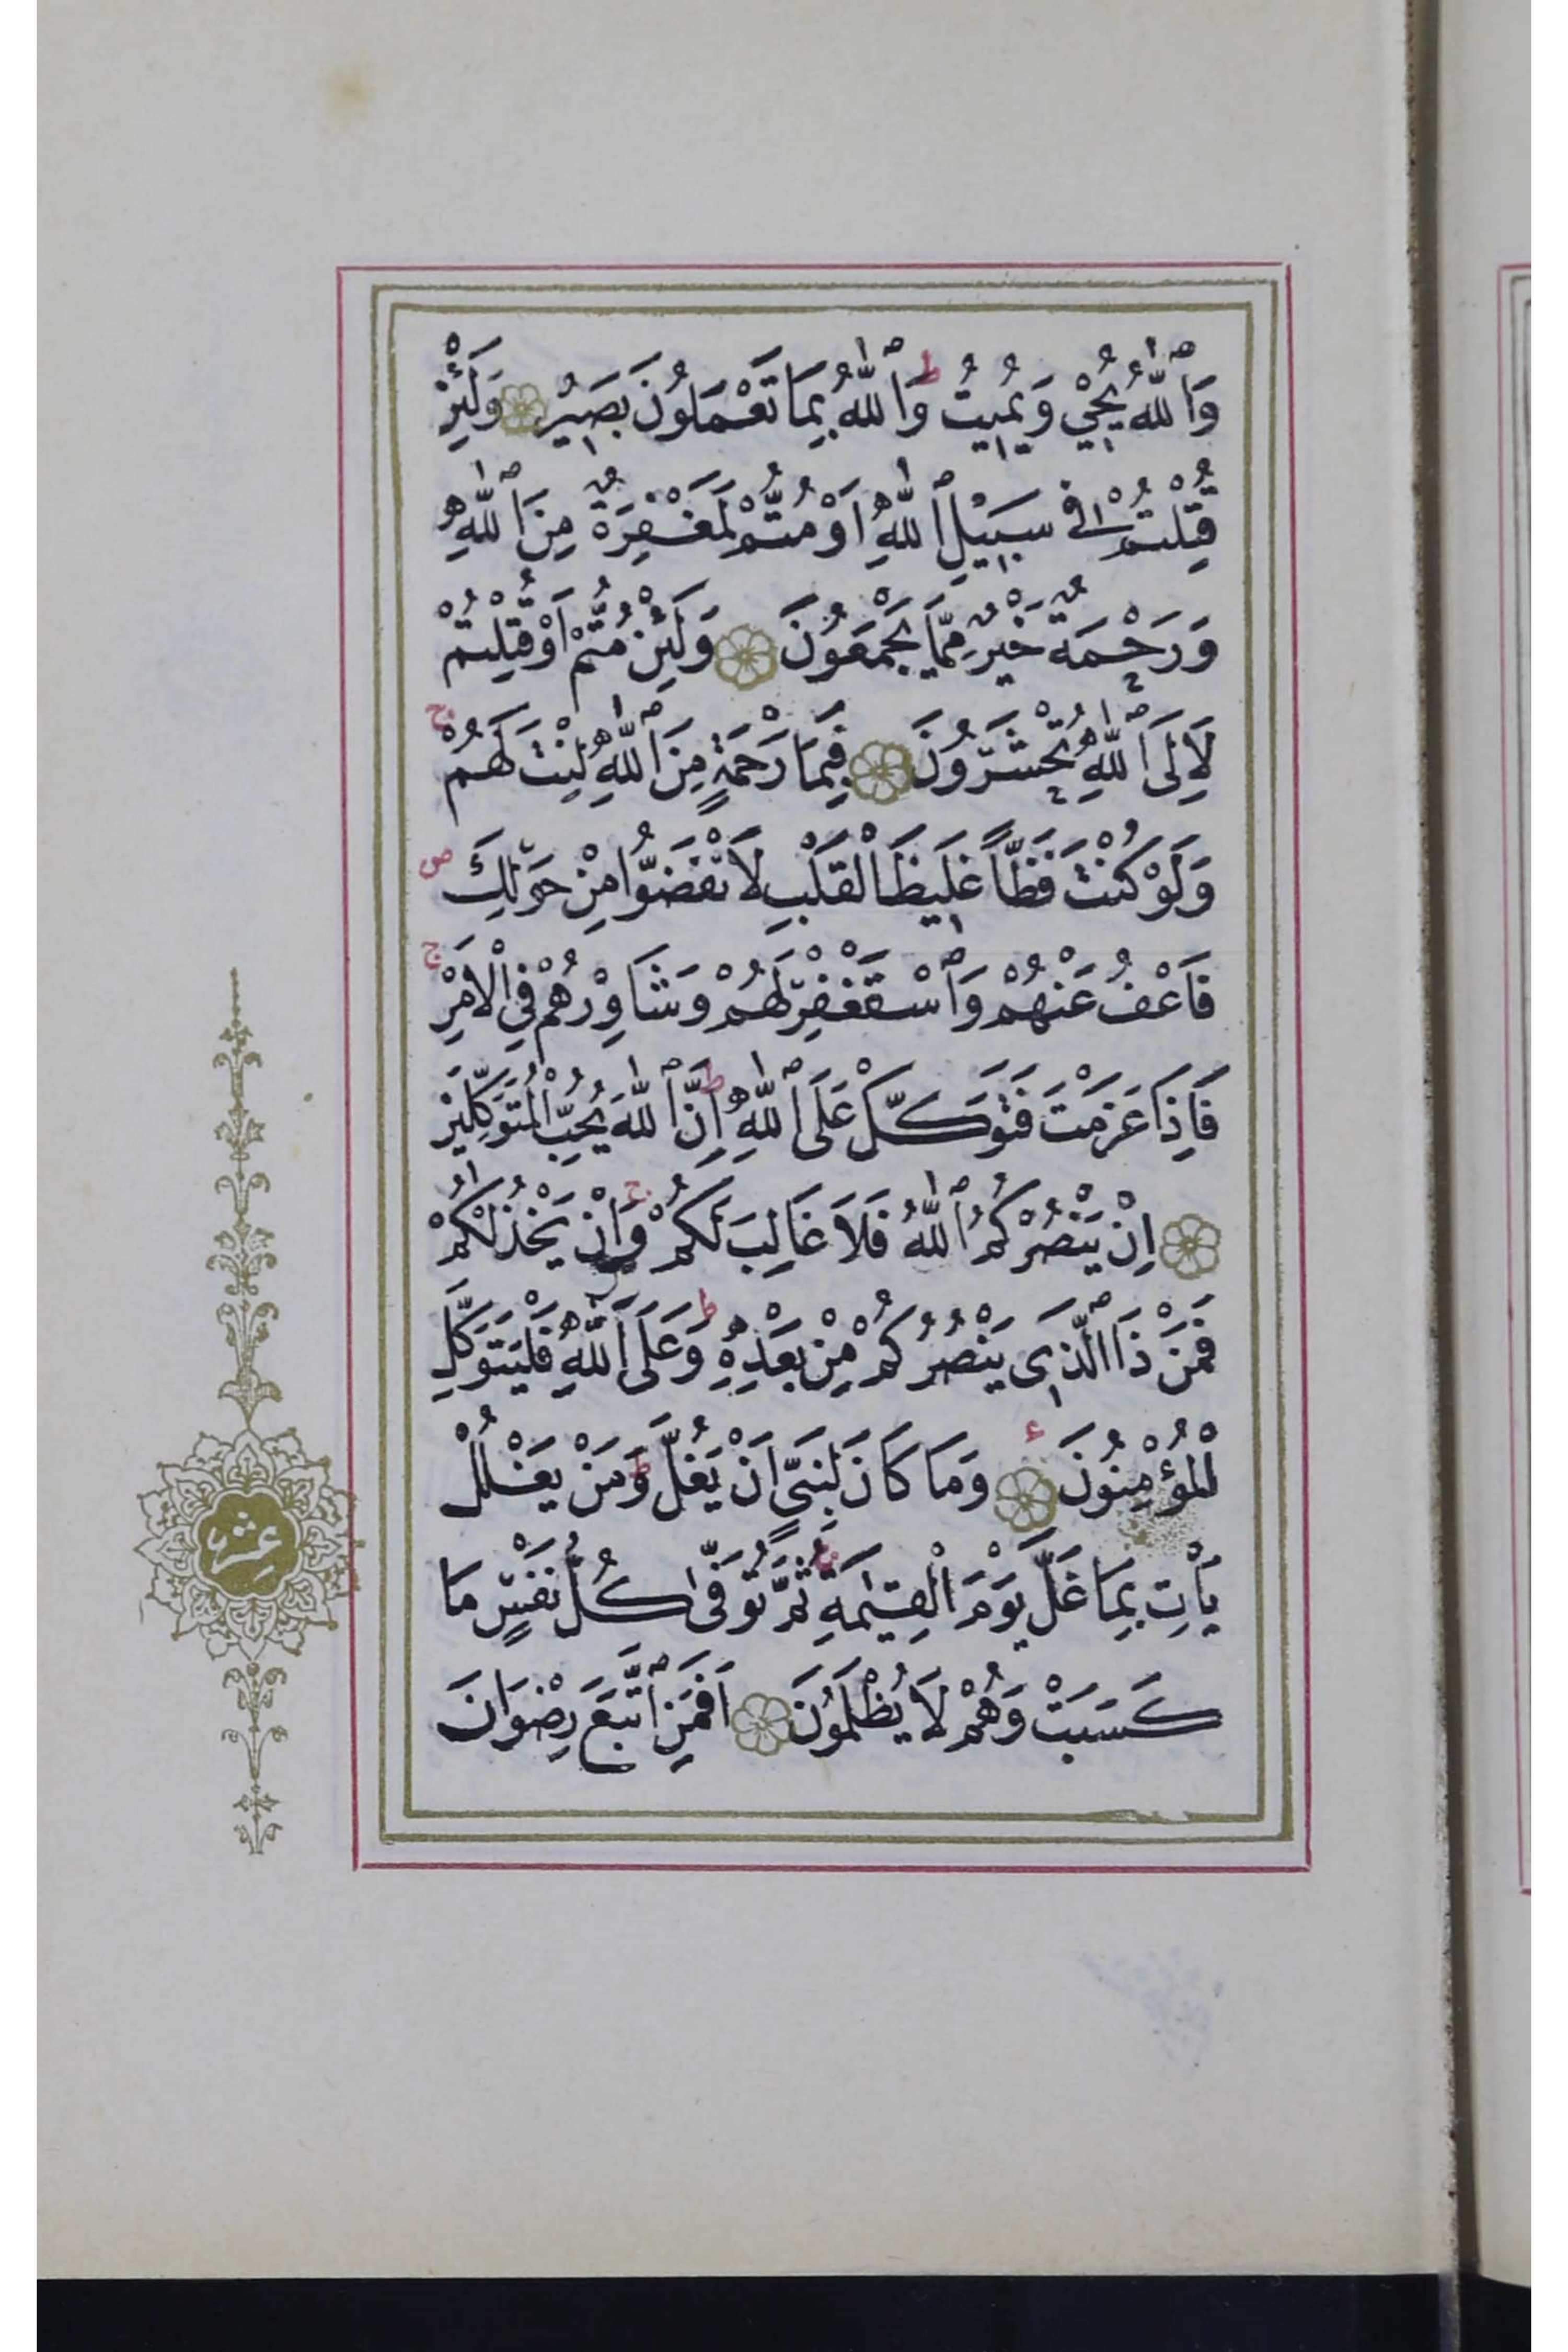 وَٱللّٰهُ يُحْيِي وَيُمِيتُ ط وَٱللّٰهُ بِمَا تَعْمَلُونَ بَصِيرٌ وَلَئِنْ
قُتِلْتُمْ فِي سَبِيلِ ٱللّٰهِ اَوْ مُتُّمْ لَمَغْفِرَةٌ مِنَ ٱللّٰهِ
وَرَحْمَةٌ خَيْرٌ مِمَّا يَجْمَعُونَ وَلَئِنْ مُتُّمْ اَوْ قُتِلْتُمْ
لَاِلَى ٱللّٰهِ تُحْشَرُونَ فَبِمَا رَحْمَةٍ مِنَ ٱللّٰهِ لِنْتَ لَهُمْ ج
وَلَوْ كُنْتَ فَظًّا غَلِيظَ الْقَلْبِ لَانْفَضُّوا مِنْ حَوْلِكَ ص
فَاعْفُ عَنْهُمْ وَٱسْتَغْفِرْ لَهُمْ وَشَاوِرْهُمْ فِي الْاَمْرِ ج
فَاِذَا عَزَمْتَ فَتَوَكَّلْ عَلَى ٱللّٰهِ ط اِنَّ ٱللّٰهَ يُحِبُّ الْمُتَوَكِّلِينَ
اِنْ يَنْصُرْكُمُ ٱللّٰهُ فَلَا غَالِبَ لَكُمْ ج وَاِنْ يَخْذُلْكُمْ
فَمَنْ ذَا ٱلَّذِي يَنْصُرُكُمْ مِنْ بَعْدِهِ ط وَعَلَى ٱللّٰهِ فَلْيَتَوَكَّلِ
الْمُؤْمِنُونَ ء وَمَا كَانَ لِنَبِيٍّ اَنْ يَغُلَّ ط وَمَنْ يَغْلُلْ
يَأْتِ بِمَا غَلَّ يَوْمَ الْقِيٰمَةِ ج ثُمَّ تُوَفّٰى كُلُّ نَفْسٍ مَا
كَسَبَتْ وَهُمْ لَا يُظْلَمُونَ اَفَمَنِ ٱتَّبَعَ رِضْوَانَ
عشر